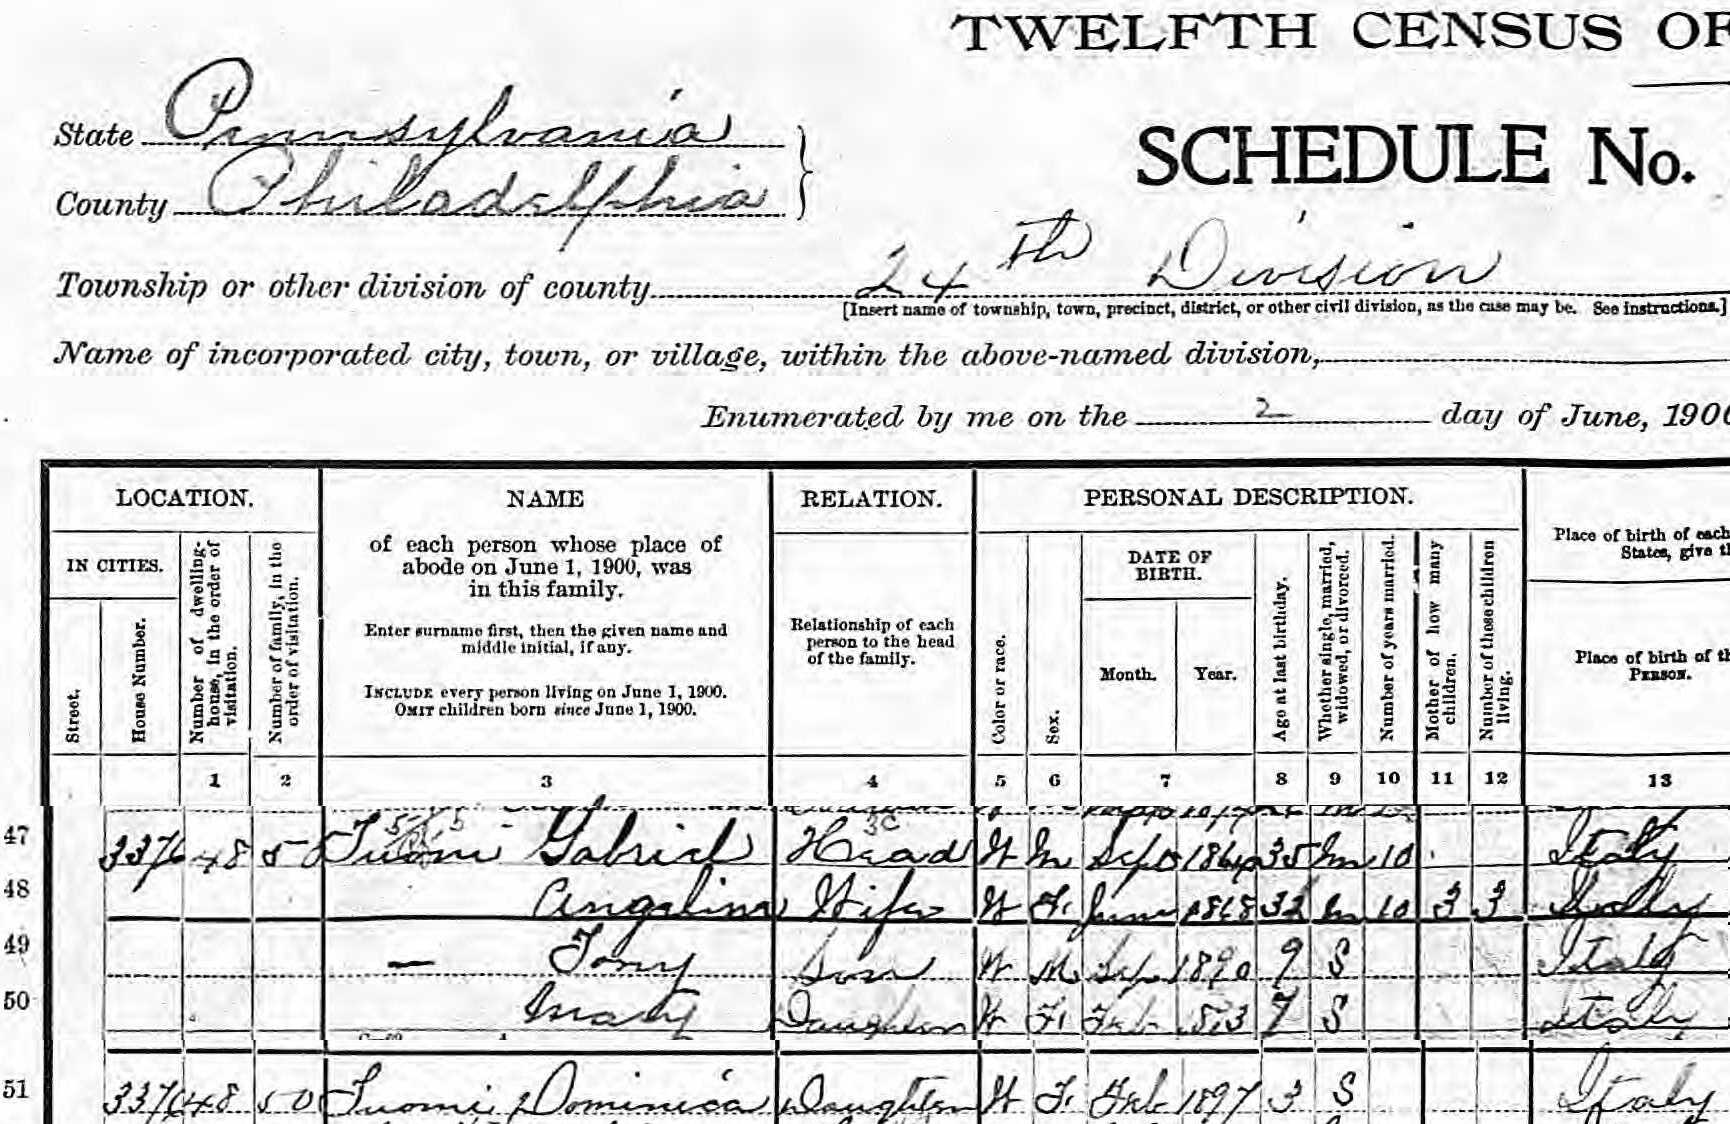 TWELFTH CENSUS OF
State Pennsylvania
SCHEDULE No.
County Philadelphia
Township or other division of county 24th Division
[Insert name of township, town, precinct, district, or other civil division, as the case may be. See instructions.]
Name of incorporated city, town, or village, within the above-named division,
Enumerated by me on the 2 day of June, 190
LOCATION. NAME RELATION. PERSONAL DESCRIPTION.
IN CITIES.
Street.
House Number.
Number of dwelling-house, in the order of visitation.
Number of family, in the order of visitation.
of each person whose place of
abode on June 1, 1900, was
in this family.
Enter surname first, then the given name and
middle initial, if any.
INCLUDE every person living on June 1, 1900.
OMIT children born since June 1, 1900.
Relationship of each
person to the head
of the family.
Color or race.
Sex.
DATE OF
BIRTH.
Month. Year.
Age at last birthday.
Whether single, married, widowed, or divorced.
Number of years married.
Mother of how many children.
Number of these children living.
Place of birth of each
States, give th
Place of birth of th
PERSON.
1 2 3 4 5 6 7 8 9 10 11 12 13
47 3376 48 50 Tuomi Gabriel Head W M Sep 1864 35 M 10 Italy
48 Angelina Wife W F June 1868 32 M 10 3 3 Italy
49 — Tony Son W M Sep 1890 9 S Italy
50 Mary Daughter W F Feb 1893 7 S Italy
51 3376 48 50 Tuomi Dominica Daughter W F Feb 1897 3 S Italy